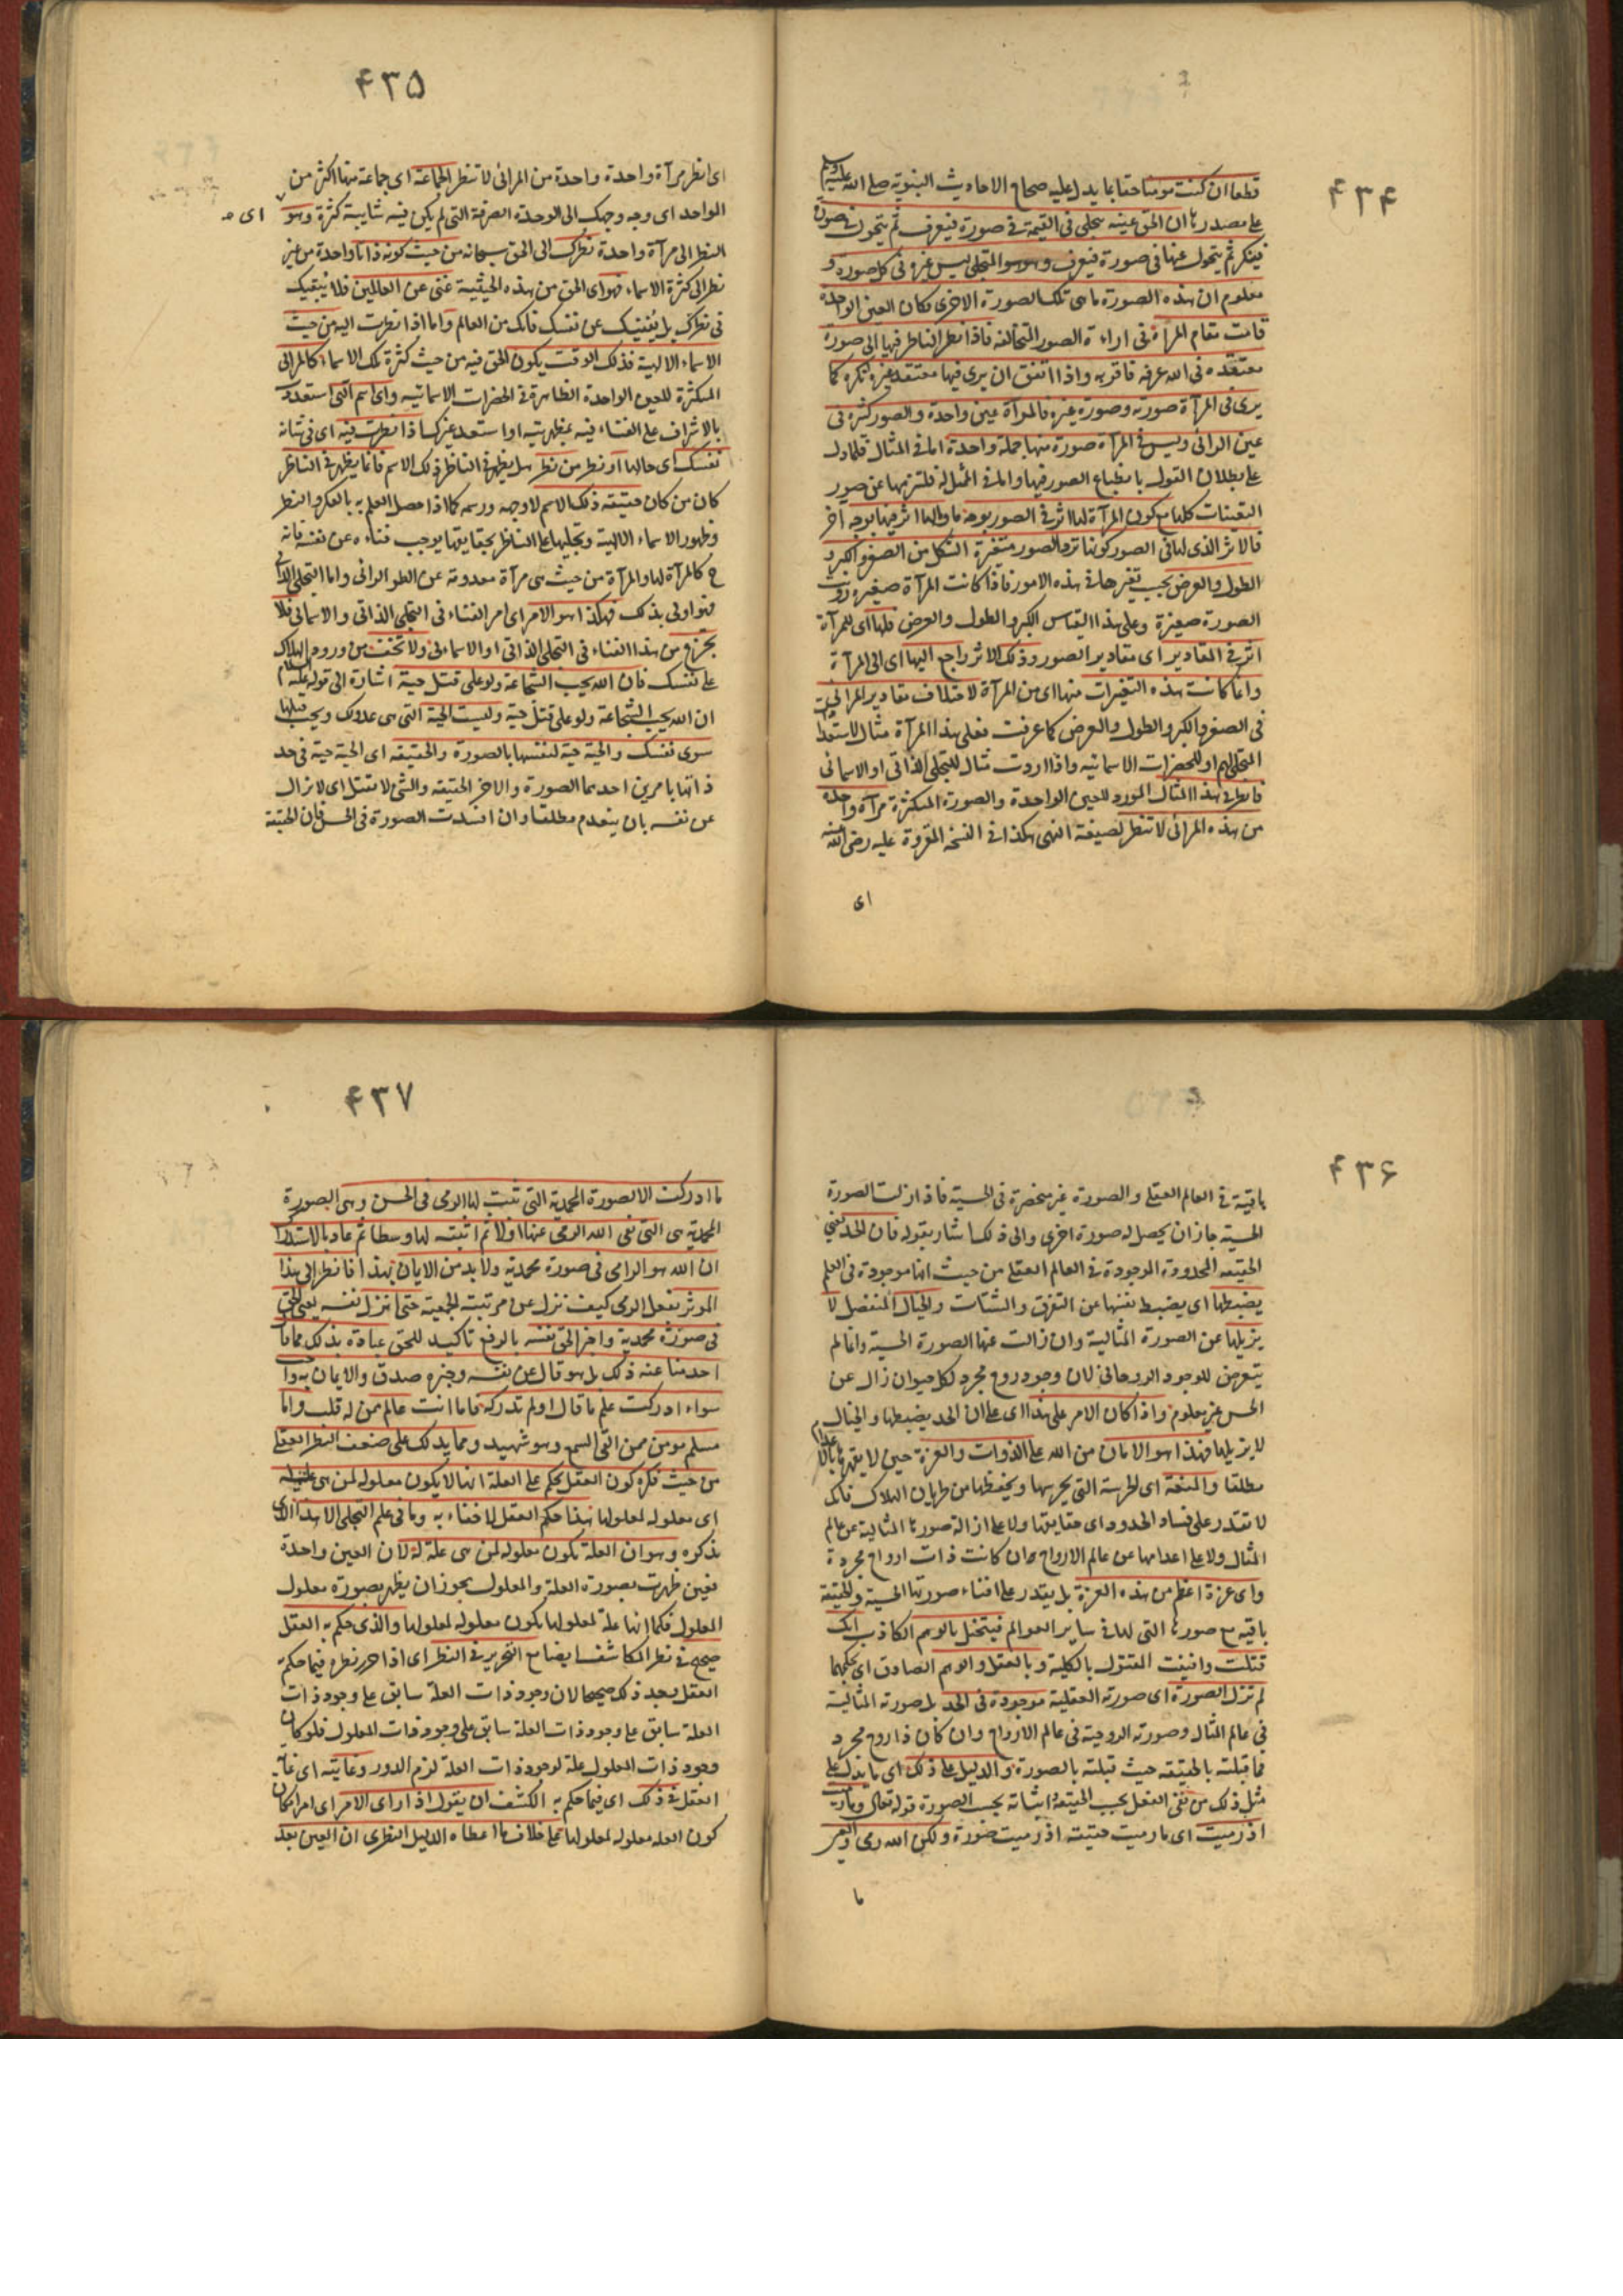 ۴۳۴
قطعا ان كنت مومنا حقا بما يدل عليه صحاح الاحاديث النبوية صلى الله عليه وسلم
على مصدرها ان الحق عينه يتجلى فى القيمة فى صورة فيعرف ثم يتحول فى صورة
فينكر ثم يتحول عنها فى صورة فيعرف وهو هو المتجلى ليس غيره فى كل صورة و
معلوم ان هذه الصورة ما هى تلك الصورة الاخرى فكان العين الواحدة
قامت مقام المرآة فى اراءة الصور المتخالفة فاذا نظر الناظر فيها الى صورة
معتقده فى الله عرفه فاقر به واذا اتفق ان يرى فيها معتقد غيره انكره كما
يرى فى المرآة صورته وصورة غيره فالمرآة عين واحدة والصور كثيرة فى
عين الرائى وليس فى المرآة صورة منها جملة واحدة اما فى المثال فلما دل
على بطلان القول بانطباع الصور فيها واما فى الممثل له فلتنزيهها عن صور
التعينات كلها مع كون المرآة لها اثر فى الصور بوجه وما لها اثر فيها بوجه آخر
فالاثر الذى لها فى الصور كونها ترد الصور متغيرة الشكل من الصغر والكبر و
الطول والعرض بحسب تغيرها فى هذه الامور فاذا كانت المرآة صغيرة رؤيت
الصورة صغيرة وعلى هذا القياس الكبر والطول والعرض فلها اى للمرآة
اثر فى المقادير اى مقادير الصور وذلك الاثر راجع اليها اى الى المرآة
وانما كانت هذه التغيرات منها اى من المرآة لاختلاف مقادير المرائى
فى الصغر والكبر والطول والعرض كما عرفت فعلى هذا المرآة مثال لاستعداد
المتجلى لهم او للحضرات الاسمائية واذا اردت مثال للتجلى الذاتى او الاسمائى
فانظر فى هذا المثال المورد للعين الواحدة والصورة المتكثرة مرآة واحدة
من هذه المرائى لا تنظر لصيغة النهى هكذا فى النسخة المقروة عليه رضى الله عنه
اى
۴۳۵
اى انظر مرآة واحدة واحدة من المرائى لا تنظر الجماعة اى جماعة منها اكثر من
الواحد اى وجه وجهك الى الوحدة الصرفة التى لم يكن فيه شايبة كثرة وهو
اى
النظر الى مرآة واحدة نظرك الى الحق سبحانه من حيث كونه ذاتا واحدة من غير
نظر الى كثرة الاسماء فهو اى الحق من هذه الحيثية غنى عن العالمين فلا يُبقيك
فى نظرك بل يُفنيك عن نفسك فانك من العالم واما اذا نظرت اليه من حيث
الاسماء الالهية فذلك الوقت يكون الحق فيه من حيث كثرة تلك الاسماء كالمرائى
المتكثرة للعين الواحدة الظاهرة فى الحضرات الاسمائية واى اسم التى استعدت
بالاشراف على الفناء فيه بمظهريته او استعد غيرك اذا نظرت فيه اى فى شانه
نفسك اى حالها او نظر من نظر هل يظهر فى الناظر ذلك الاسم فانما يظهر فى الناظر
كان من كان حقيقة ذلك الاسم لا وجهه ورسمه كما اذا حصل العلم به بالفكر والنظر
وظهور الاسماء الالهية وتجليها على الناظر بحقايقها يوجب فناءه عن نفسه فانه
ح كالمرآة لها والمرآة من حيث هى مرآة معدومة عن نظر الرائى واما التجلى الذاتى
فهو اولى بذلك فهكذا هو الامر اى امر الفناء فى التجلى الذاتى والاسمائى فلا
تجزع من هذا الفناء فى التجلى الذاتى او الاسمائى ولا تخف من ورود الهلاك
على نفسك فان الله يحب الشجاعة ولو على قتل حية اشارة الى قوله عليه السلام
ان الله يحب الشجاعة ولو على قتل حية وليست الحية التى هى عدوك ويجب قتلها
سوى نفسك والحية حية لنفسها بالصورة والحقيقة اى الحية حية فى حد
ذاتها بامرين احدهما الصورة والاخر الحقيقة والشئ لا تقتل اى لا تزال
عن نفسه بان ينعدم مطلقا وان افسدت الصورة فى الحس فان الحقيقة
۴۳۶
باقية فى العالم العقلى والصورة غير منحصرة فى الحسية فاذا زالت الصورة
الحسية جاز ان يحصل له صورة اخرى والى ذلك اشار بقوله فان الحد يعنى
الحقيقة المحدودة الموجودة فى العالم العقلى من حيث انها موجودة فى العلم
يضبطها اى يضبط نفسها عن التفرق والشتات والخيال المنفصل لا
يزيلها عن الصورة المثالية وان زالت عنها الصورة الحسية وانما لم
يتعرض للوجود الروحانى لان وجود روح مجرد لكل حيوان زال عن
الحس غير معلوم واذا كان الامر على هذا اى على ان الحد يضبطها والخيال
لا يزيلها فهذا هو الامان من الله على الذوات والعزة حين لا يقهرها بالاعدام
مطلقا والمنعة اى الحرسة التى يحرسها ويحفظها من طريان الهلاك فانك
لا تقدر على فساد الحدود اى حقايقها ولا على ازالة صورتها المثالية عن عالم
المثال ولا على اعدامها عن عالم الارواح وان كانت ذات ارواح مجردة
واى عزة اعظم من هذه العزة بل يقتدر على افناء صورتها الحسية والحقيقة
باقية مع صورتها التى لها فى ساير العوالم فيتخيل بالوهم الكاذب انك
قتلت وافنيت المقتول بالكلية وبالعقل والوهم الصادق اى بحكمهما
لم تزل الصورة اى صورته العقلية موجودة فى الحد بل صورته المثالية
فى عالم المثال وصورته الروحية فى عالم الارواح وان كان ذا روح مجرد
فما قتلته بالحقيقة حيث قتلته بالصورة والدليل على ذلك اى ما يدل على
مثل ذلك من نفى الفعل بحسب الحقيقة واثباته بحسب الصورة قوله تعالى وما رميت
اذ رميت اى ما رميت حقيقة اذ رميت صورة ولكن الله رمى والعين
ما
۴۳۷
ما ادركت الا الصورة المحمدية التى ثبت لها الرمى فى الحس وهى الصورة
المحمدية هى التى نفى الله الرمى عنها اولا ثم اثبته لها وسطا ثم عاد بالاستدراك
ان الله هو الرامى فى صورة محمدية ولا بد من الايمان بهذا فانظر الى هذا
الموثر بفعل الرمى كيف نزل عن مرتبته الجمعية حتى انزل نفسه يعنى الحق
فى صورة محمدية واخبر الحق نفسه بالرفع تاكيد للحق عباده بذلك فما قال
احد منا عنه ذلك بل هو قال عن نفسه وخبره صدق والايمان به واجب
سواء ادركت علم ما قال او لم تدركه فاما انت عالم ممن له قلب واما
مسلم مومن ممن القى السمع وهو شهيد ومما يدلك على ضعف النظر العقلى
من حيث فكره كون العقل يحكم على العلة انها لا يكون معلولة لمن هى علة له
اى معلولة لمعلولها هذا حكم العقل لا خفاء به وما فى علم التجلى الا هذا الذى
نذكره وهو ان العلة تكون معلولة لمن هى علة له لان العين واحدة
فعين ظهرت بصورة العلة والمعلول يجوز ان يظهر بصورة معلول
المعلول فكما انها علة لمعلولها يكون معلولة لمعلولها والذى حكم به العقل
صحيح فى نظر المكاشف ايضا مع التحرير فى النظر اى اذا حرر نظره فيما حكم
العقل يجد ذلك صحيحا لان وجود ذات العلة سابق على وجود ذات
العلة سابق على وجود ذات العلة سابق على وجود ذات المعلول فلو كان
وجود ذات المعلول علة لوجود ذات العلة لزم الدور وغايته اى غاية
العقل فى ذلك اى فيما حكم به الكشف ان يقول اذا راى الامر اى امر امكان
كون العله معلولة لمعلولها على خلاف ما اعطاه الدليل النظرى ان العين بعد